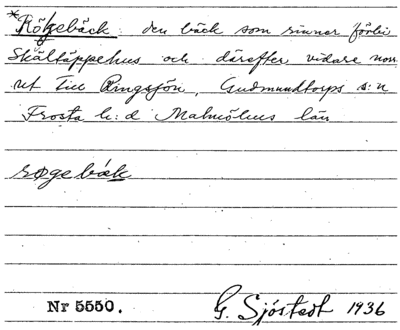 *Rögebäck den bäck som rinner förbi
Skältäppehus och därefter vidare norr
ut till Ringsjön, Gudmundtorps s:n
Frosta h:d Malmöhus län
røgebæk
Nr 5550. G. Sjöstedt 1936